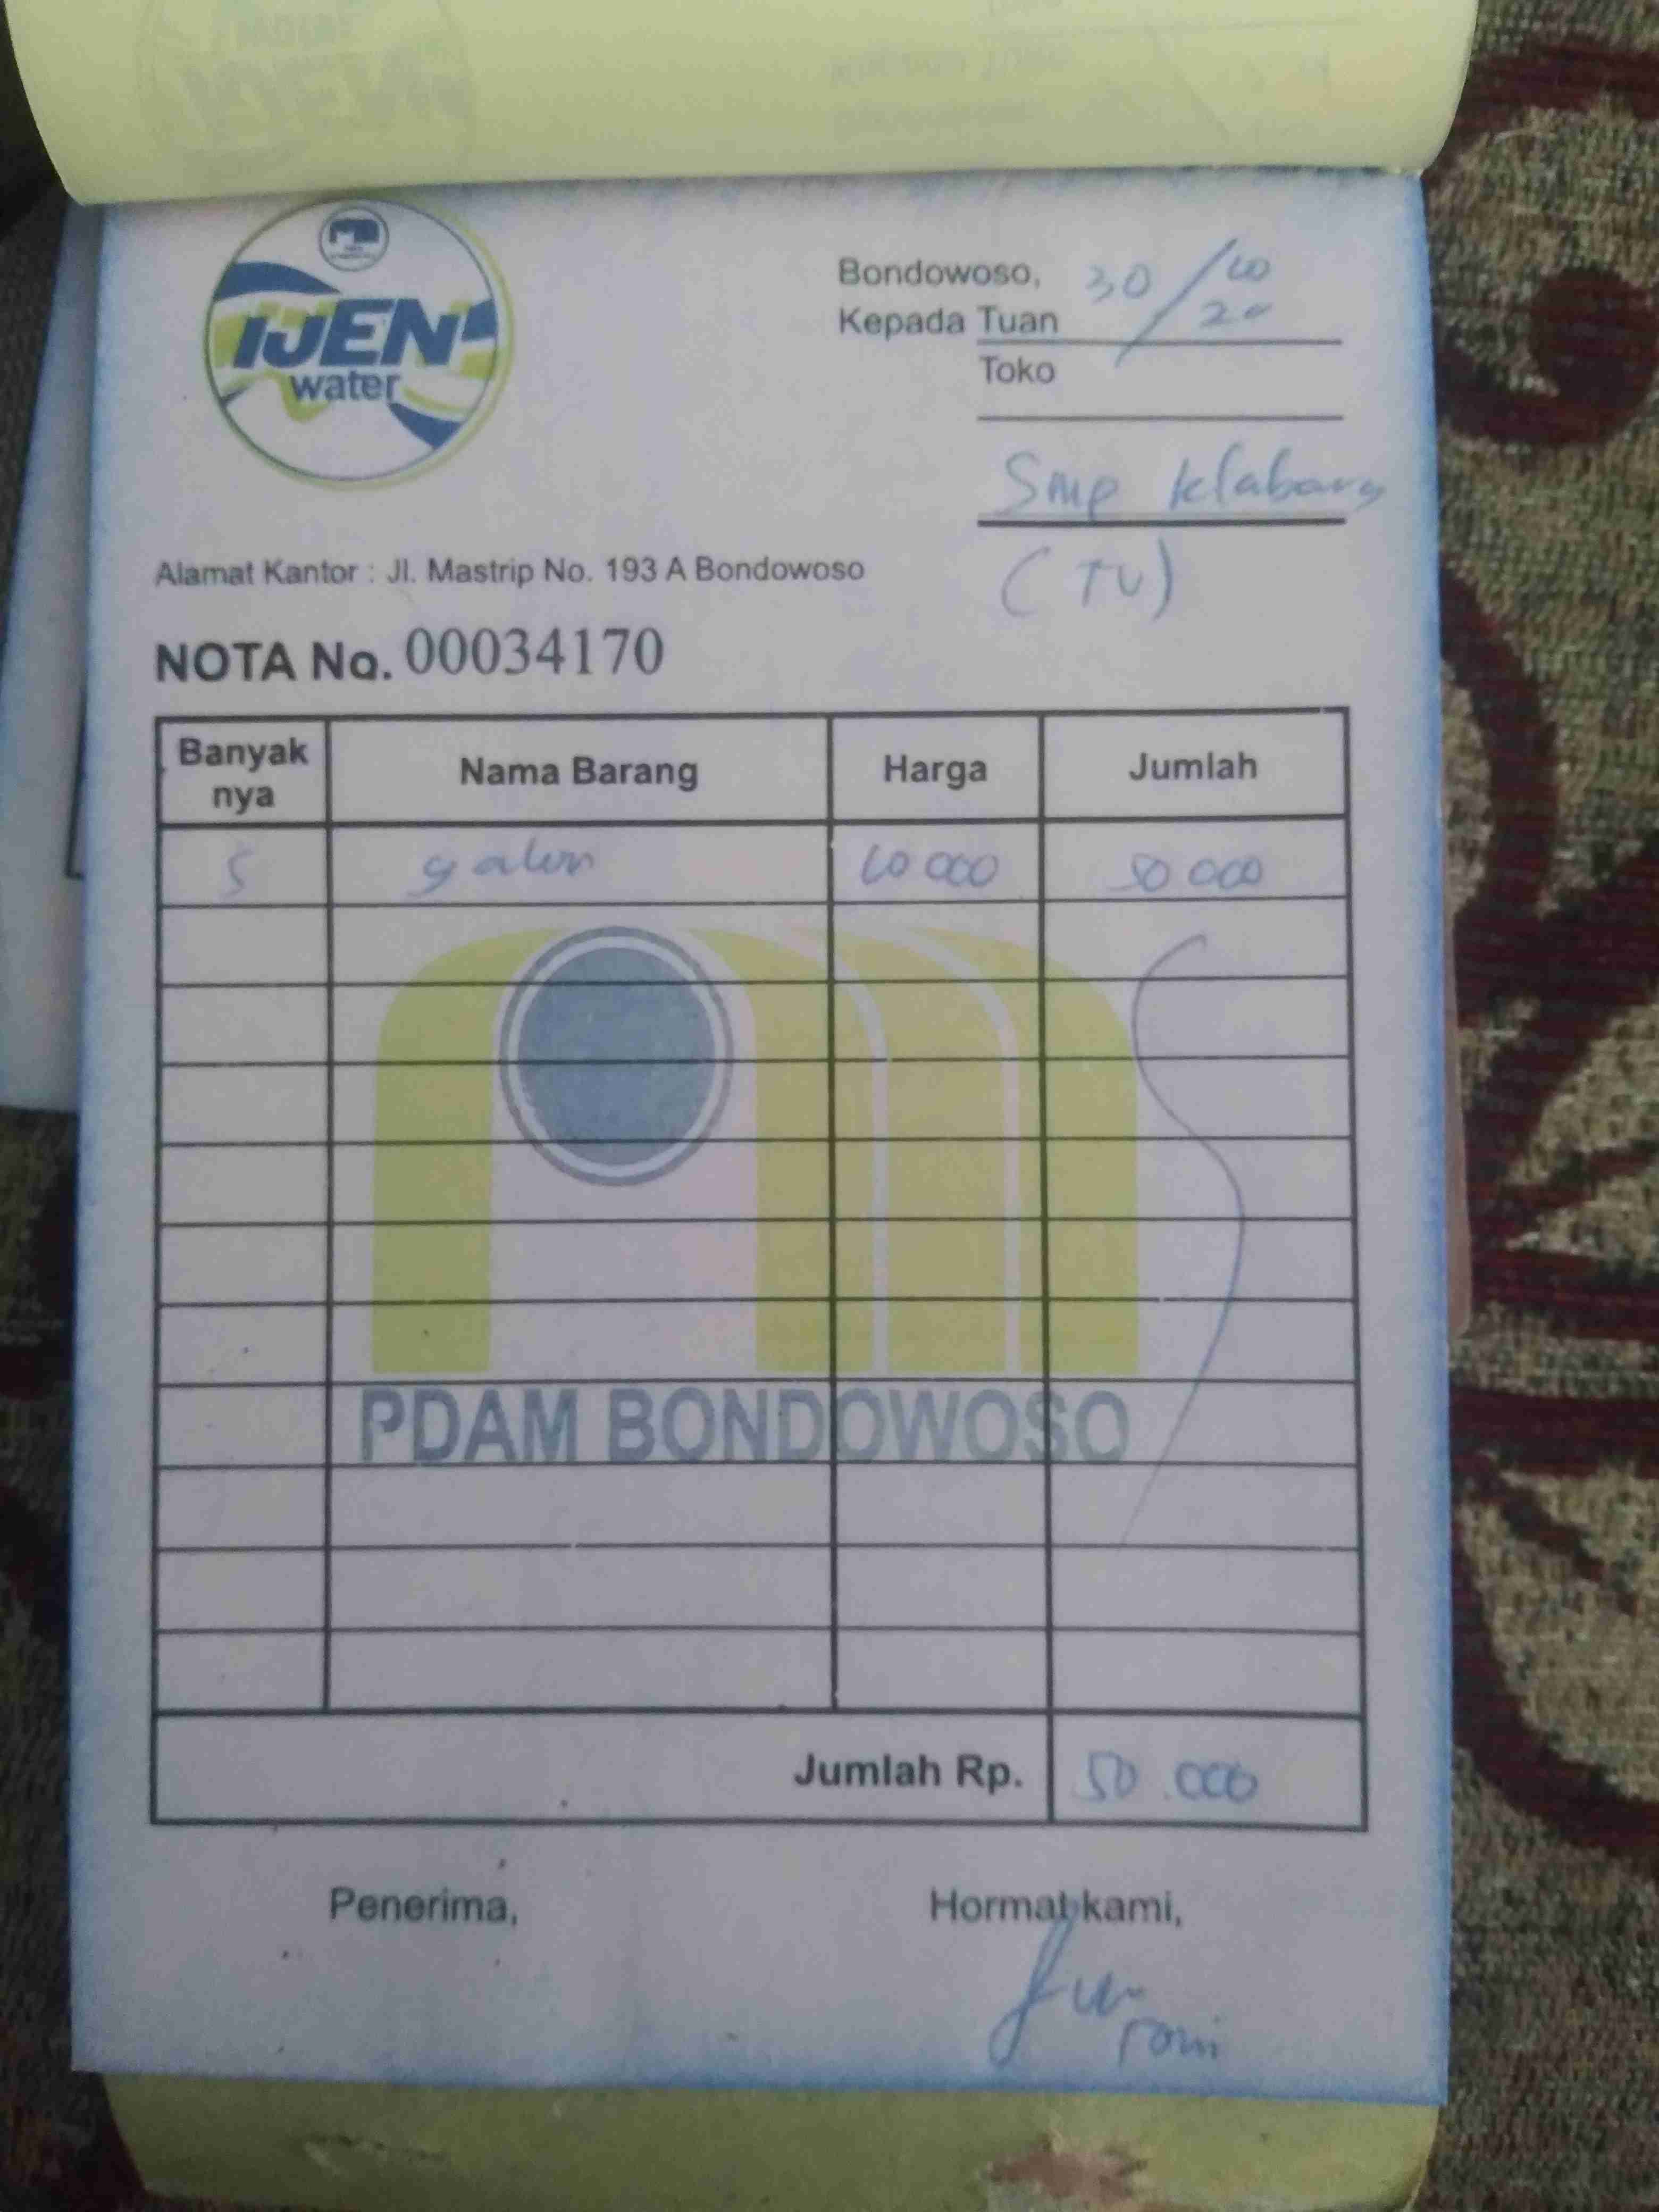 IJEN
water
Bondowoso, 30/10
20
Kepada Tuan
Toko
Smp Klabang
(TU)
Alamat Kantor : Jl. Mastrip No. 193 A Bondowoso
NOTA No. 00034170
Banyak nya Nama Barang Harga Jumlah
5 galon 10 000 50 000
PDAM BONDOWOSO
Jumlah Rp. 50.000
Penerima, Hormat kami,